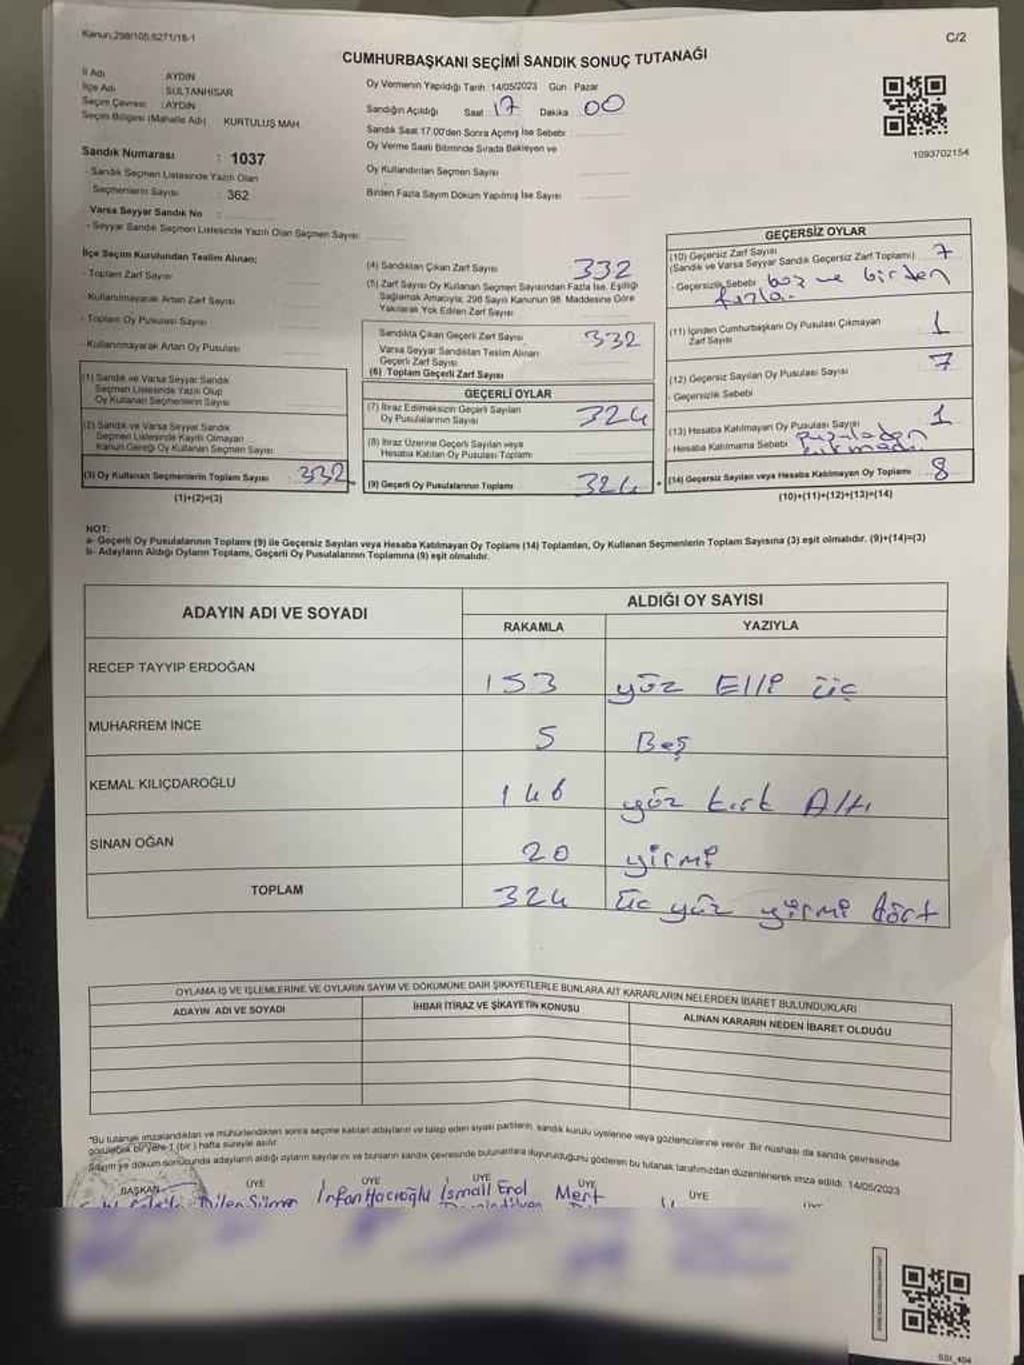 Kanun:298/105,6271/18-1
C/2
CUMHURBAŞKANI SEÇİMİ SANDIK SONUÇ TUTANAĞI
İl Adı AYDIN
İlçe Adı SULTANHİSAR
Seçim Çevresi : AYDIN
Seçim Bölgesi (Mahalle Adı) KURTULUŞ MAH.
Sandık Numarası : 1037
- Sandık Seçmen Listesinde Yazılı Olan
Seçmenlerin Sayısı : 362
- Varsa Seyyar Sandık No :
- Seyyar Sandık Seçmen Listesinde Yazılı Olan Seçmen Sayısı
Oy Vermenin Yapıldığı Tarih 14/05/2023 Gün : Pazar
Sandığın Açıldığı Saat 17 Dakika 00
Sandık Saat 17:00'den Sonra Açılmış İse Sebebi
Oy Verme Saati Bitiminde Sırada Bekleyen ve
Oy Kullandırılan Seçmen Sayısı
Birden Fazla Sayım Döküm Yapılmış İse Sayısı
1093702154
İlçe Seçim Kurulundan Teslim Alınan;
- Toplam Zarf Sayısı
- Kullanılmayarak Artan Zarf Sayısı
- Toplam Oy Pusulası Sayısı
- Kullanılmayarak Artan Oy Pusulası
(1) Sandık ve Varsa Seyyar Sandık
Seçmen Listesinde Yazılı Olup
Oy Kullanan Seçmenlerin Sayısı
(2) Sandık ve Varsa Seyyar Sandık
Seçmen Listesinde Kayıtlı Olmayan
Kanun Gereği Oy Kullanan Seçmen Sayısı
(3) Oy Kullanan Seçmenlerin Toplam Sayısı 332
(1)+(2)=(3)
(4) Sandıktan Çıkan Zarf Sayısı 332
(5) Zarf Sayısı Oy Kullanan Seçmen Sayısından Fazla İse, Eşitliği
Sağlamak Amacıyla; 298 Sayılı Kanunun 98. Maddesine Göre
Yakılarak Yok Edilen Zarf Sayısı
Sandıkta Çıkan Geçerli Zarf Sayısı 332
Varsa Seyyar Sandıktan Teslim Alınan
Geçerli Zarf Sayısı
(6) Toplam Geçerli Zarf Sayısı
GEÇERLİ OYLAR
(7) İtiraz Edilmeksizin Geçerli Sayılan
Oy Pusulalarının Sayısı 324
(8) İtiraz Üzerine Geçerli Sayılan veya
Hesaba Katılan Oy Pusulası Toplamı
(9) Geçerli Oy Pusulalarının Toplamı 324
GEÇERSİZ OYLAR
(10) Geçersiz Zarf Sayısı 7
(Sandık ve Varsa Seyyar Sandık Geçersiz Zarf Toplamı)
- Geçersizlik Sebebi boş ve birden
fazla.
(11) İçinden Cumhurbaşkanı Oy Pusulası Çıkmayan
Zarf Sayısı 1
(12) Geçersiz Sayılan Oy Pusulası Sayısı 7
- Geçersizlik Sebebi
(13) Hesaba Katılmayan Oy Pusulası Sayısı 1
- Hesaba Katılmama Sebebi
(14) Geçersiz Sayılan veya Hesaba Katılmayan Oy Toplamı 8
(10)+(11)+(12)+(13)=(14)
NOT:
a- Geçerli Oy Pusulalarının Toplamı (9) ile Geçersiz Sayılan veya Hesaba Katılmayan Oy Toplamı (14) Toplamları, Oy Kullanan Seçmenlerin Toplam Sayısına (3) eşit olmalıdır. (9)+(14)=(3)
b- Adayların Aldığı Oyların Toplamı, Geçerli Oy Pusulalarının Toplamına (9) eşit olmalıdır.
ADAYIN ADI VE SOYADI ALDIĞI OY SAYISI
RAKAMLA YAZIYLA
RECEP TAYYİP ERDOĞAN 153 yüz Elli üç
MUHARREM İNCE 5 Beş
KEMAL KILIÇDAROĞLU 146 yüz kırk Altı
SİNAN OĞAN 20 yirmi
TOPLAM 324 üç yüz yirmi dört
OYLAMA İŞ VE İŞLEMLERİNE VE OYLARIN SAYIM VE DÖKÜMÜNE DAİR ŞİKAYETLERLE BUNLARA AİT KARARLARIN NELERDEN İBARET BULUNDUKLARI
ADAYIN ADI VE SOYADI İHBAR İTİRAZ VE ŞİKAYETİN KONUSU ALINAN KARARIN NEDEN İBARET OLDUĞU
*Bu tutanak imzalandıktan ve mühürlendikten sonra seçime katılan adayların ve talep eden siyasi partilerin, sandık kurulu üyelerine veya gözlemcilerine verilir. Bir nüshası da sandık çevresinde
görülebilir bir yere 1 (bir) hafta süreyle asılır.
Sayım ve döküm sonucunda adayların aldığı oyların sayılarını ve bunların sandık çevresinde bulunanlara duyurulduğunu gösteren bu tutanak tarafımızdan düzenlenerek imza edildi. 14/05/2023
BAŞKAN ÜYE ÜYE ÜYE ÜYE ÜYE
Dilen Sümer İrfan Hacıoğlu İsmail Erol Mert